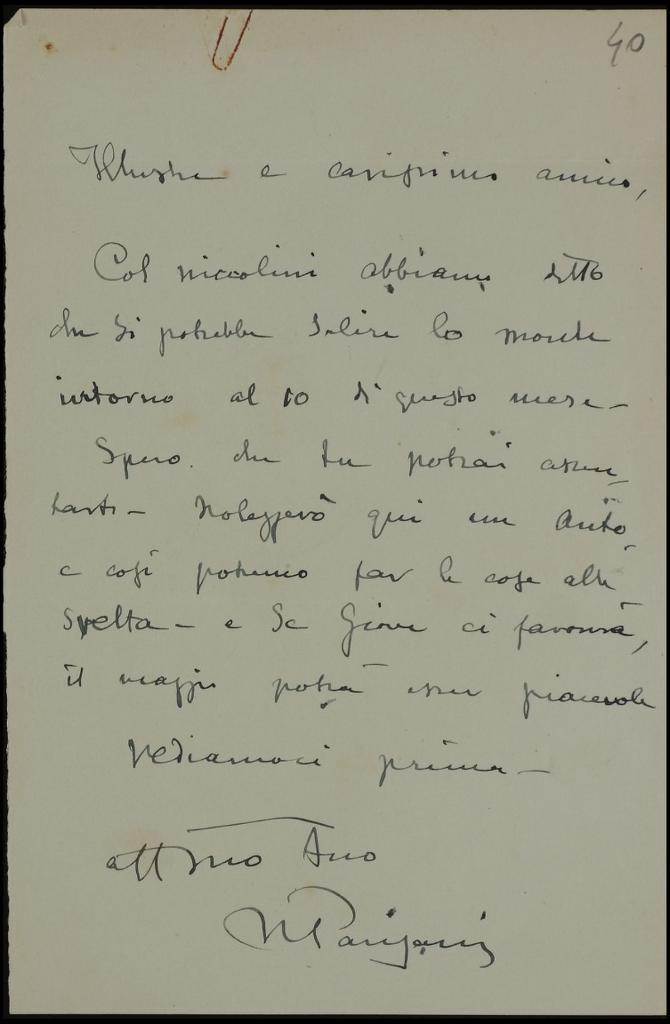 40
Illustre e carissimo amico,
Col Niccolini abbiamo detto
che si potrebbe salire lo monte
intorno al 10 di questo mese –
Spero che tu potrai assen-
tarti – Noleggerò qui un auto
e così potremo far le cose alla
svelta – e se Giove ci favorirà,
il viaggio potrà esser piacevole
Vediamoci prima –
att.mo tuo